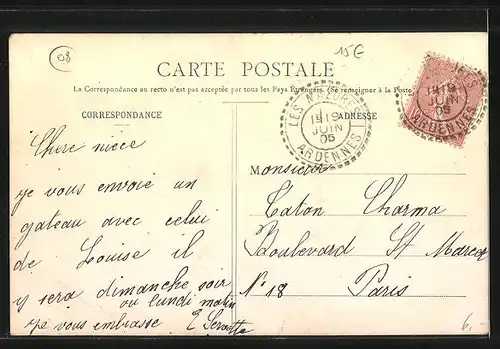 08
15€
CARTE POSTALE
La Correspondance au recto n'est pas acceptée par tous les Pays Étrangers. (Se renseigner à la Poste
CORRESPONDANCE
ADRESSE
LES MAZURES
1819
JUIN
05
ARDENNES
LES
1819
JUIN
05
ARDENNES
Chere niece
je vous envoie un
gateau avec celui
de Louise il
y sera dimanche soir
ou lundi matin
je vous embrasse E
Monsieur
Caton Charma
Boulevard St Marcel
N° 18 Paris
6.